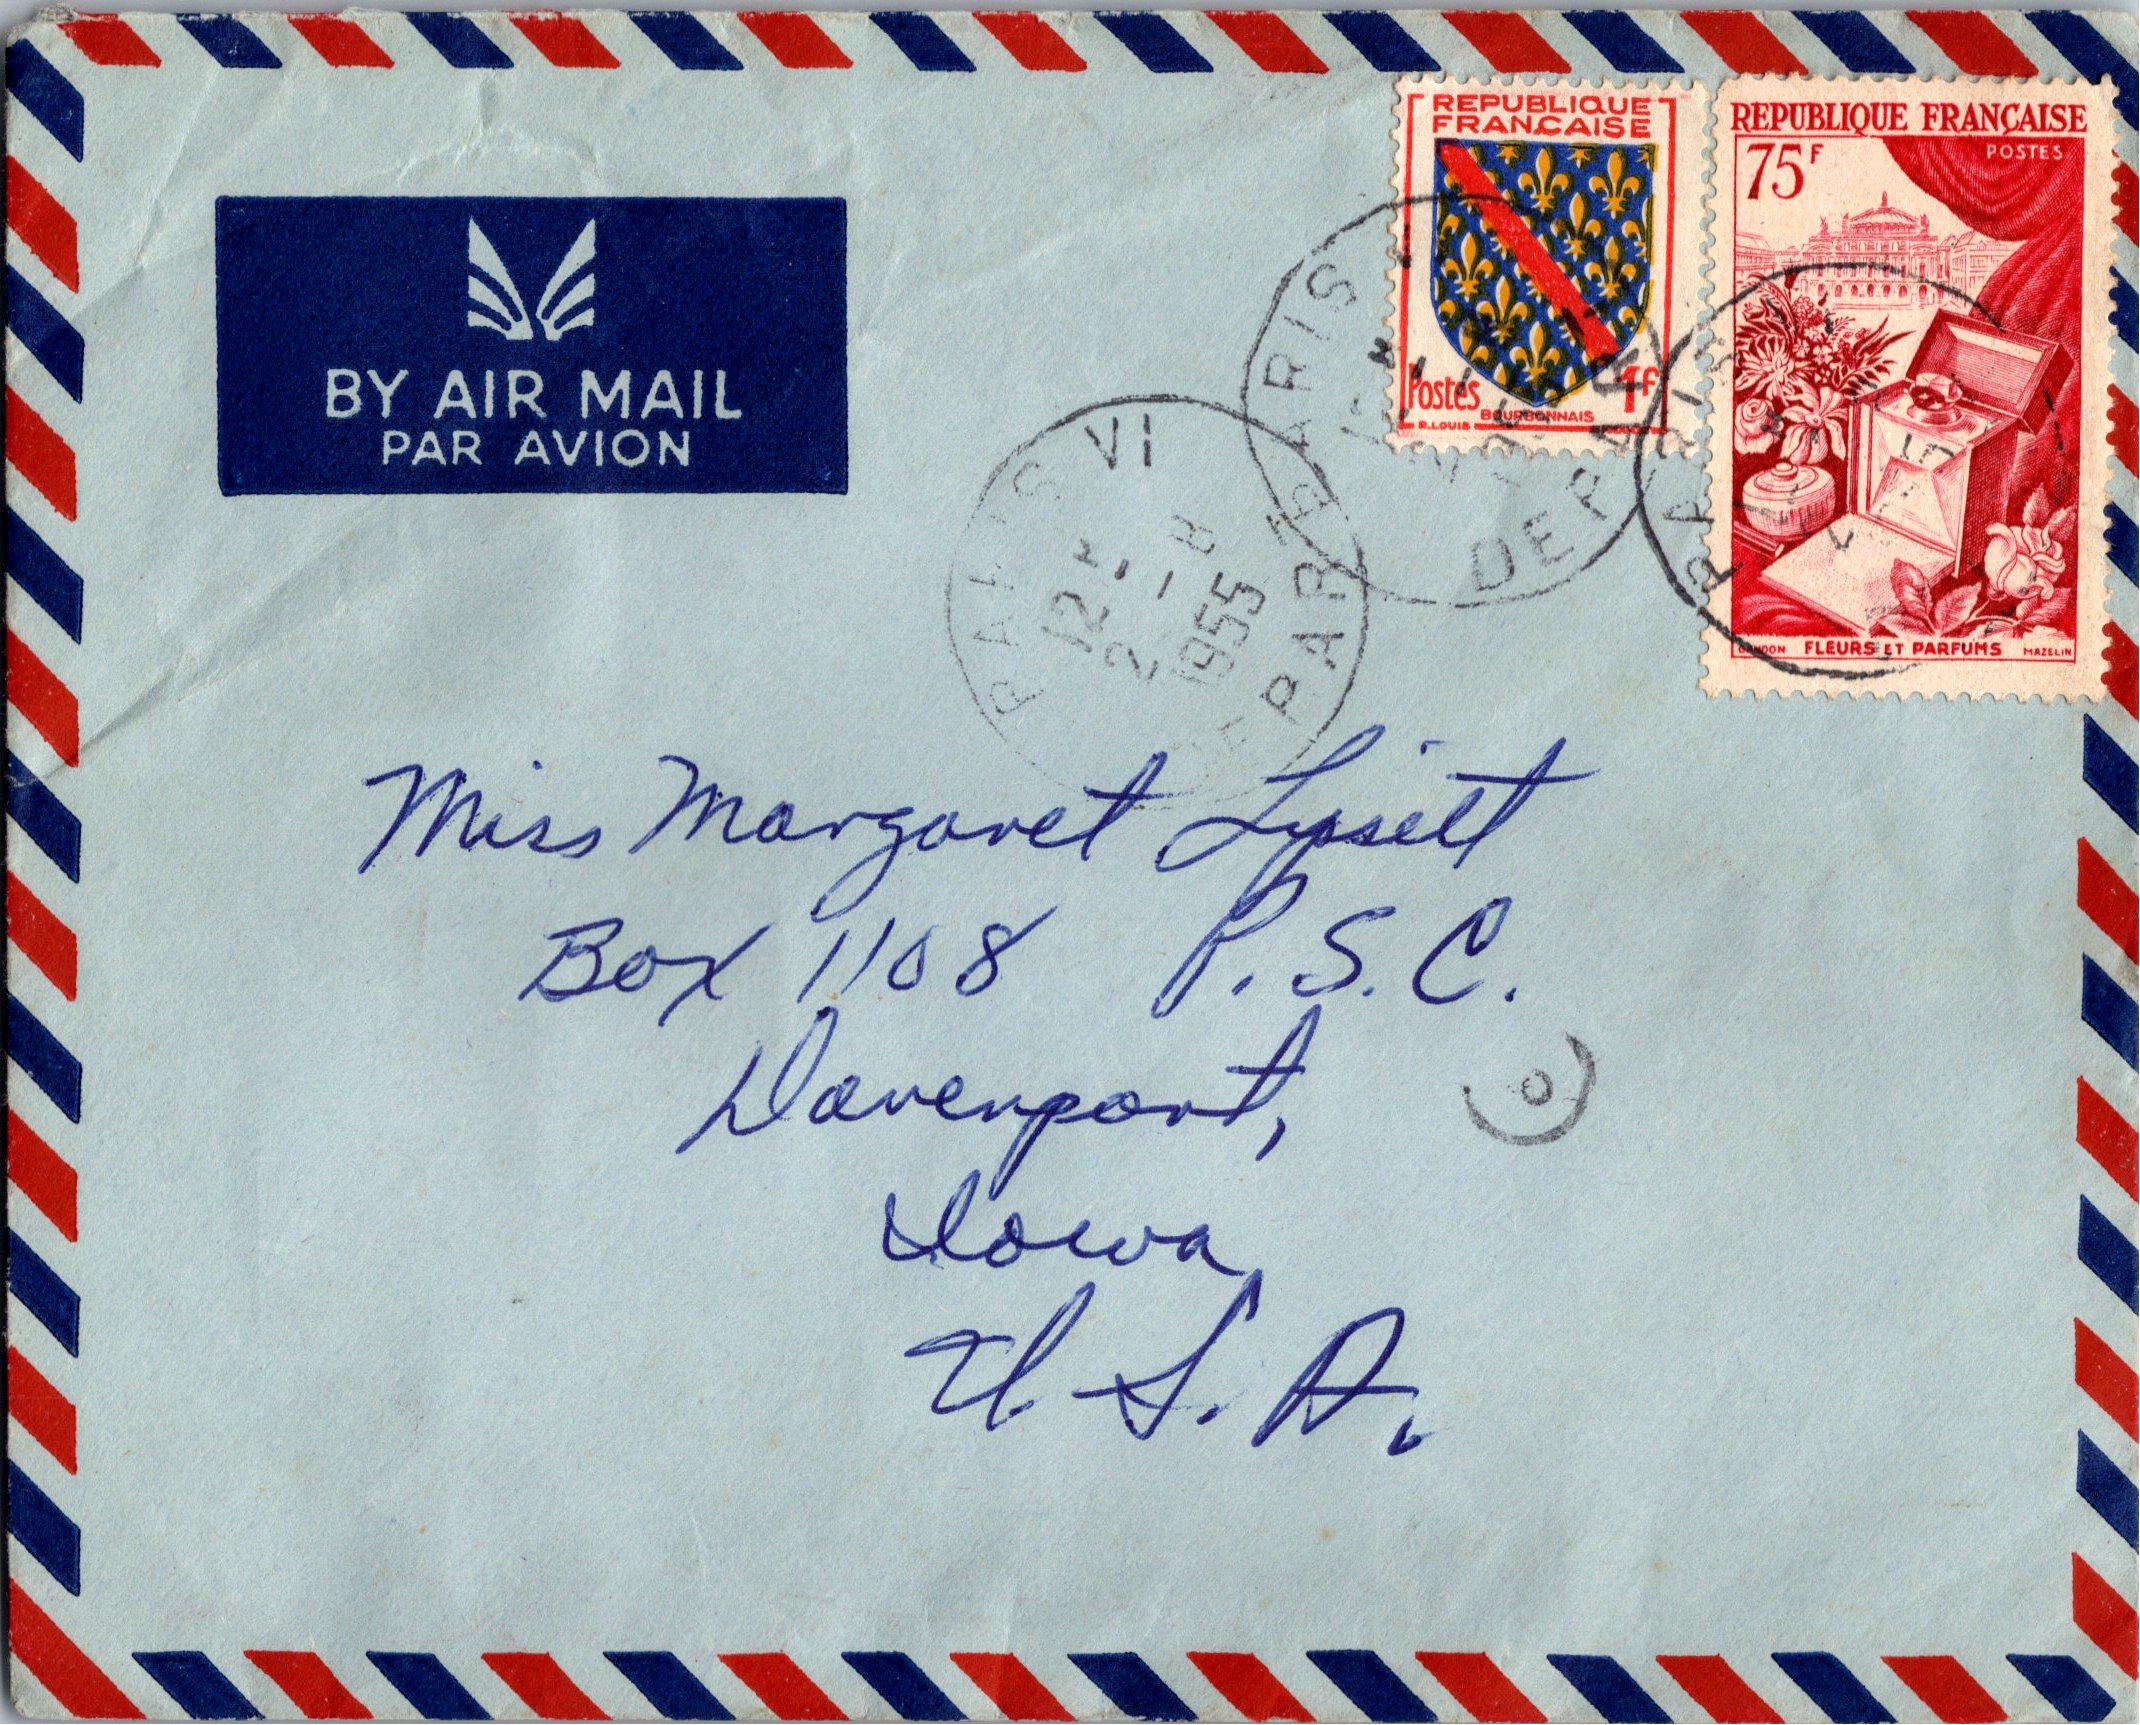 BY AIR MAIL
PAR AVION
REPUBLIQUE
FRANCAISE
Postes 1F
BOURBONNAIS
R.LOUIS
REPUBLIQUE FRANÇAISE
75F
POSTES
GANDON FLEURS ET PARFUMS MAZELIN
PARIS VI
12H
1955
DEPART
PARIS
DEPART
PARIS
Miss Margaret Lipsett
Box 1108 P.S.C.
Davenport,
Iowa
U.S.A.